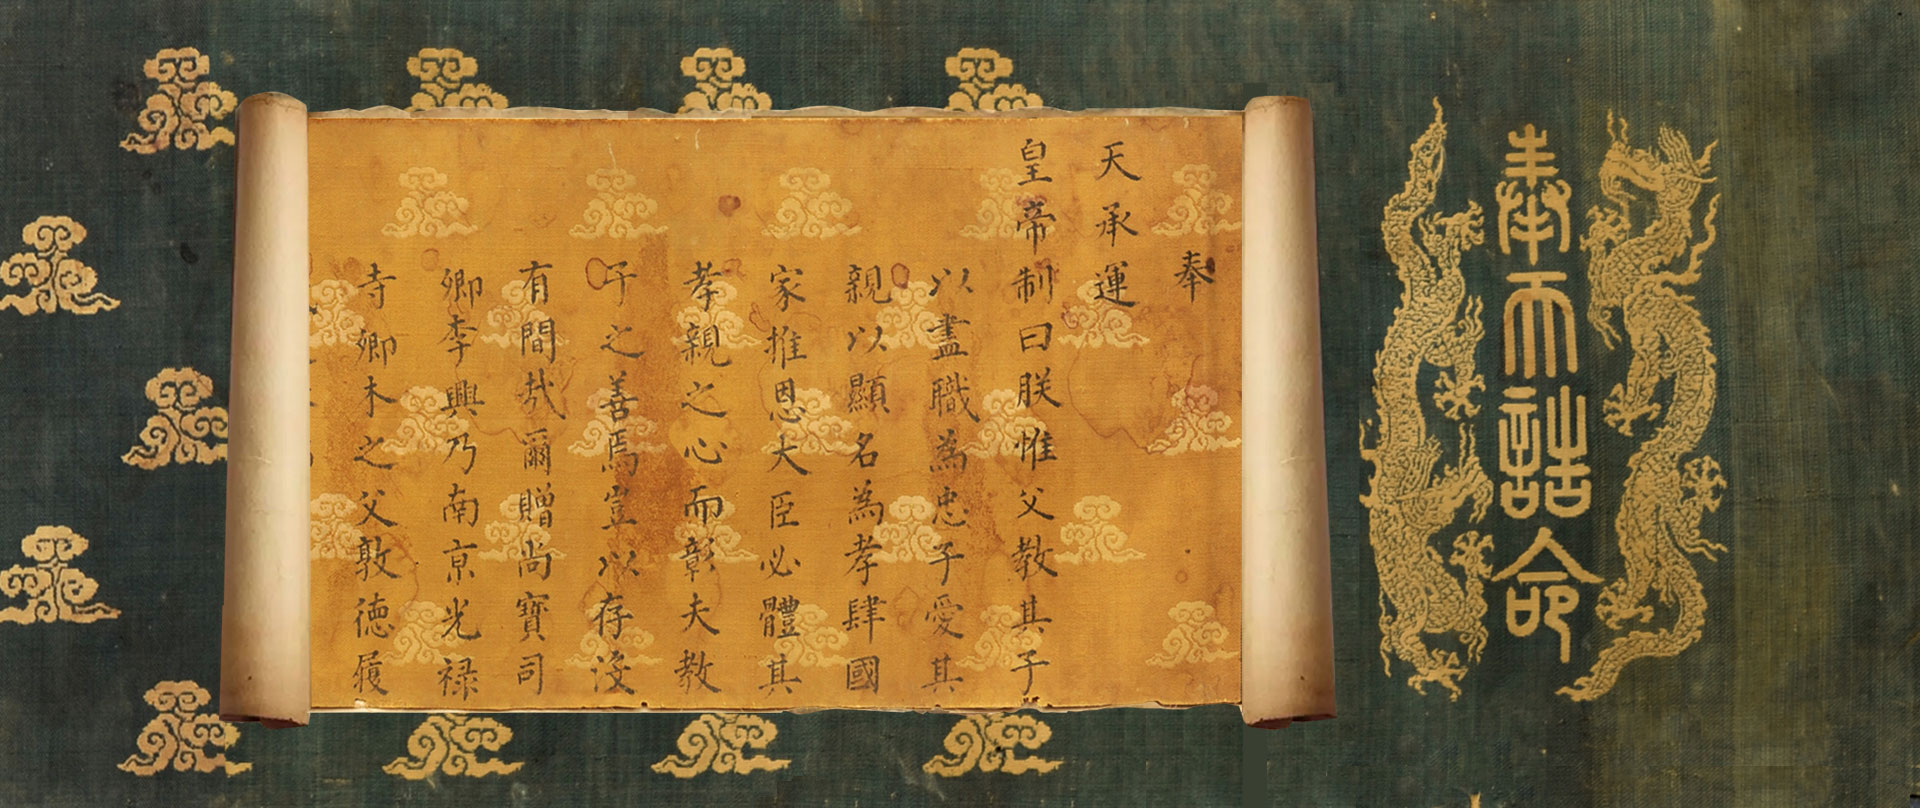 奉天誥命
奉
天承運
皇帝制曰朕惟父教其子
以盡職為忠子愛其
親以顯名為孝肆國
家推恩大臣必體其
孝親之心而彰夫教
子之善焉豈以存沒
有間哉爾贈尚寶司
卿李興乃南京光禄
寺卿木之父敦徳履